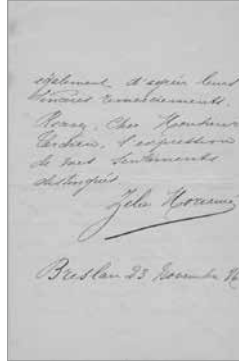 également d'agréer leurs
sincères remerciements.
Cher Monsieur
l'expression
de mes sentiments
distingués
Breslau 23 Novembre